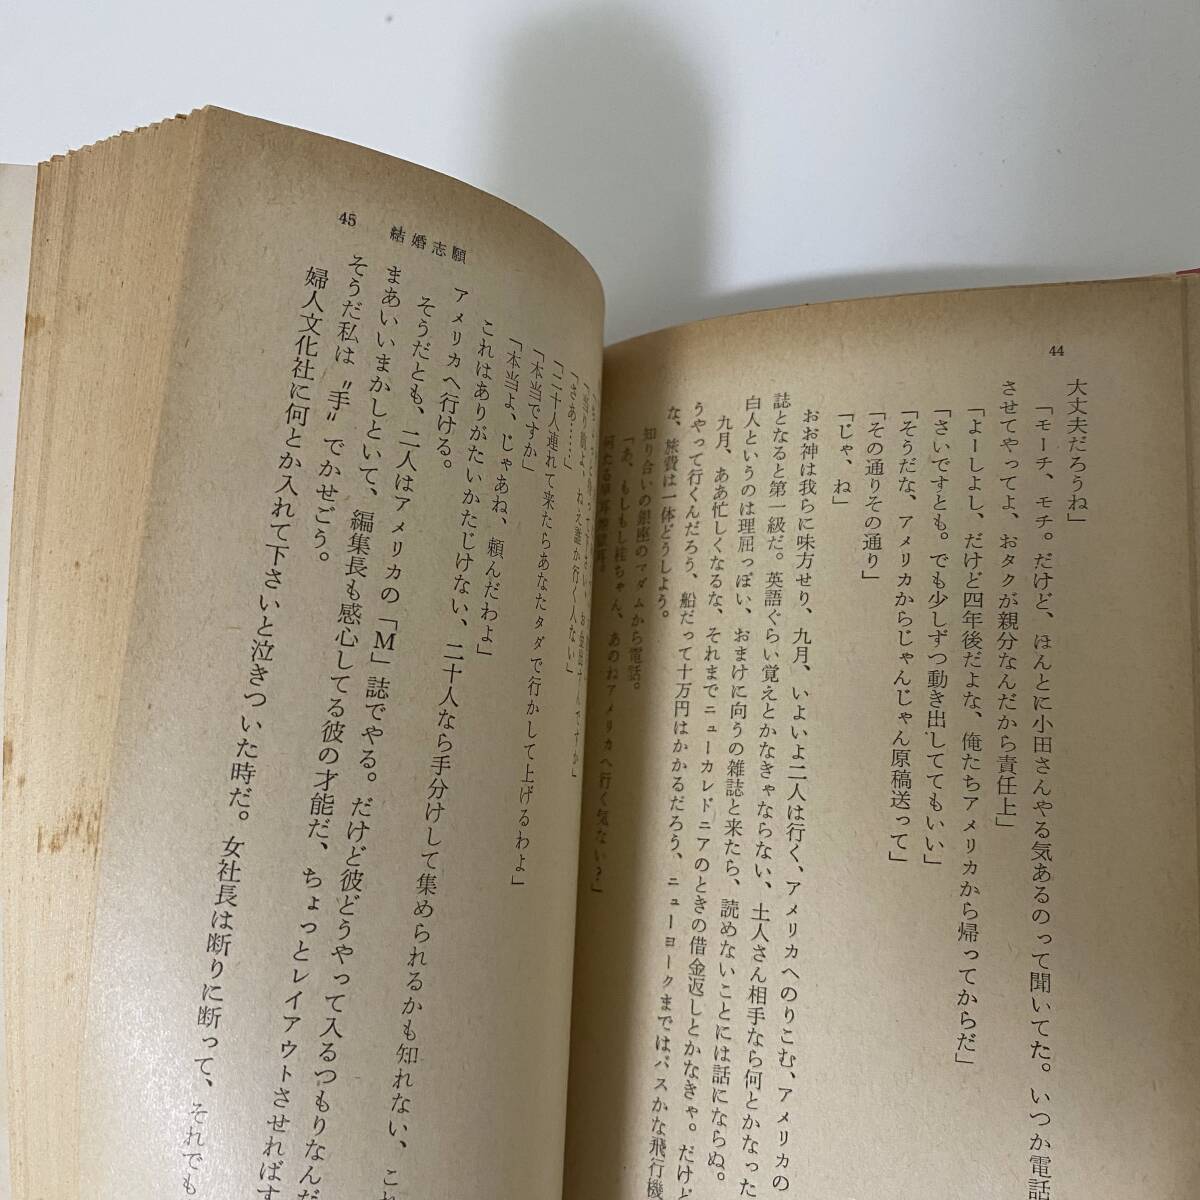 44
大丈夫だろうね」
「モーチ、モチ。だけど、ほんとに小田さんやる気あるのって聞いてた。いつか電話
させてやってよ、おタクが親分なんだから責任上」
「よーしよし、だけど四年後だよな、俺たちアメリカから帰ってからだ」
「さいですとも。でも少しずつ動き出しててもいい」
「そうだな、アメリカからじゃんじゃん原稿送って」
「その通りその通り」
「じゃ、ね」
おお神は我らに味方せり、九月、いよいよ二人は行く、アメリカへのりこむ、アメリカの
誌となると第一級だ。英語ぐらい覚えとかなきゃならない、土人さん相手なら何とかなった
白人というのは理屈っぽい、おまけに向うの雑誌と来たら、読めないことには話にならぬ。
九月、ああ忙しくなるな、それまでニューカレドニアのときの借金返しとかなきゃ。だけど
うやって行くんだろう、船だって十万円はかかるだろう、ニューヨークまではバスかな飛行機
な、旅費は一体どうしよう。
知り合いの銀座のマダムから電話。
「あ、もしもし桂ちゃん、あのねアメリカへ行く気ない？」
45
結婚志願
ねえ誰か行く人ない」
「さあ……」
「二十人連れて来たらあなたタダで行かして上げるわよ」
「本当ですか」
「本当よ、じゃあね、頼んだわよ」
これはありがたいかたじけない、二十人なら手分けして集められるかも知れない、これ
アメリカへ行ける。
そうだとも、二人はアメリカの「M」誌でやる。だけど彼どうやって入るつもりなんだ
まあいいまかしといて、編集長も感心してる彼の才能だ、ちょっとレイアウトさせればす
そうだ私は〝手〟でかせごう。
婦人文化社に何とか入れて下さいと泣きついた時だ。女社長は断りに断って、それでも